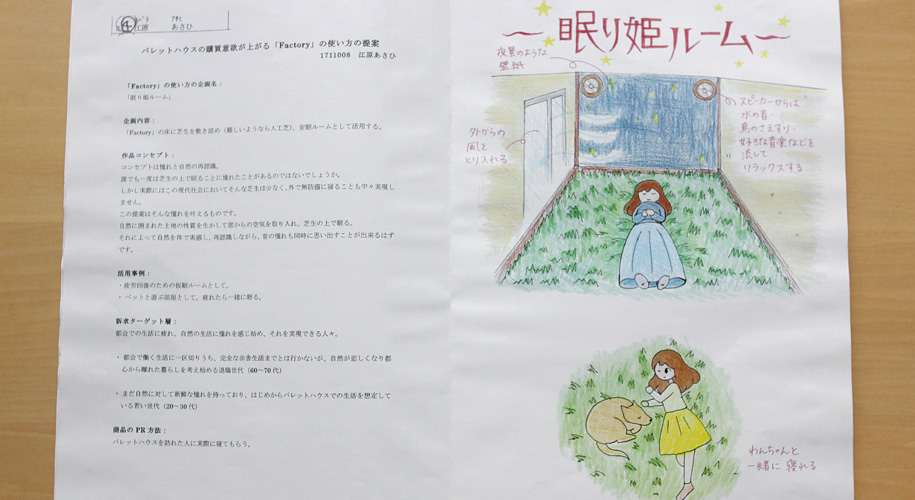 ④
江原 あさひ
パレットハウスの購買意欲が上がる「Factory」の使い方の提案
1711008 江原あさひ
「Factory」の使い方の企画名：
「眠り姫ルーム」
企画内容：
「Factory」の床に芝生を敷き詰め（難しいようなら人工芝）、安眠ルームとして活用する。
作品コンセプト：
コンセプトは憧れと自然の再認識。
誰でも一度は芝生の上で眠ることに憧れたことがあるのではないでしょうか。
しかし実際にはこの現代社会においてそんな芝生は少なく、外で無防備に寝ることも中々実現し
ません。
この提案はそんな憧れを叶えるものです。
自然に囲まれた土地の性質を生かして窓からの空気を取り入れ、芝生の上で眠る。
それによって自然を体で実感し、再認識しながら、昔の憧れも同時に思い出すことが出来るはず
です。
活用事例：
・疲労回復のための仮眠ルームとして。
・ペットと遊ぶ部屋として。疲れたら一緒に眠る。
訴求ターゲット層：
都会での生活に疲れ、自然の生活に憧れを感じ始め、それを実現できる人々。
・都会で働く生活に一区切りうち、完全な田舎生活までとは行かないが、自然が恋しくなり都
心から離れた暮らしを考え始める退職世代（60～70代）
・まだ自然に対して新鮮な憧れを持っており、はじめからパレットハウスでの生活を想定して
いる若い世代（20～30代）
商品のPR方法：
パレットハウスを訪れた人に実際に寝てもらう。
～眠り姫ルーム～
夜景のような
壁紙
外からの
風を
とり入れる
スピーカーからは
水の音・
鳥のさえずり・
好きな音楽などを
流して
リラックスする
わんちゃんと
一緒に寝れる